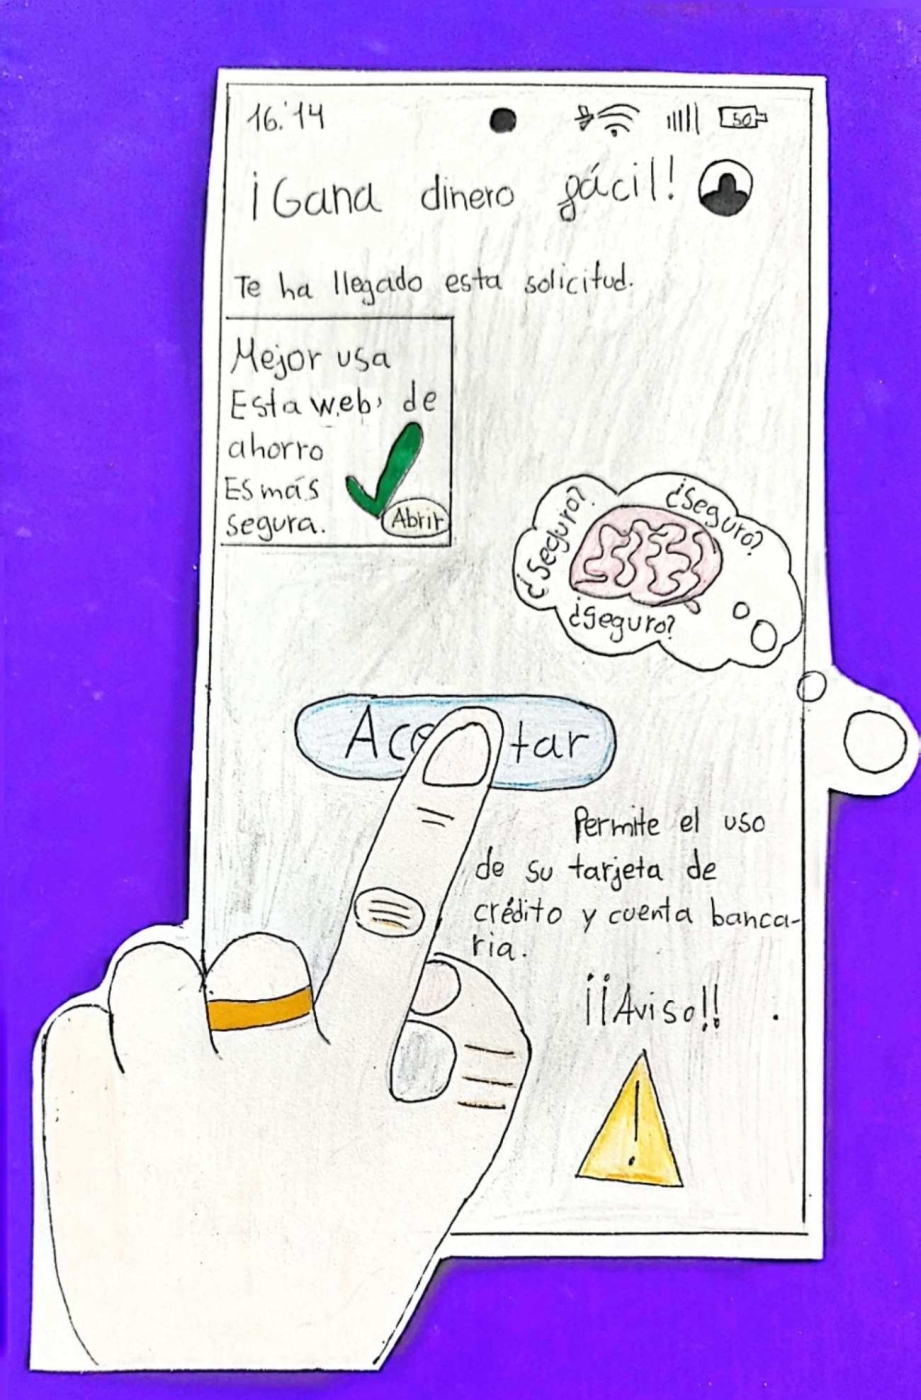 16:14
50
¡Gana dinero fácil!
Te ha llegado esta solicitud.
Mejor usa
Esta web, de
ahorro
Es más
segura.
Abrir
¿Seguro?
¿Seguro?
¿Seguro?
Aceptar
Permite el uso
de su tarjeta de
crédito y cuenta banca-
ria.
¡¡Aviso!!